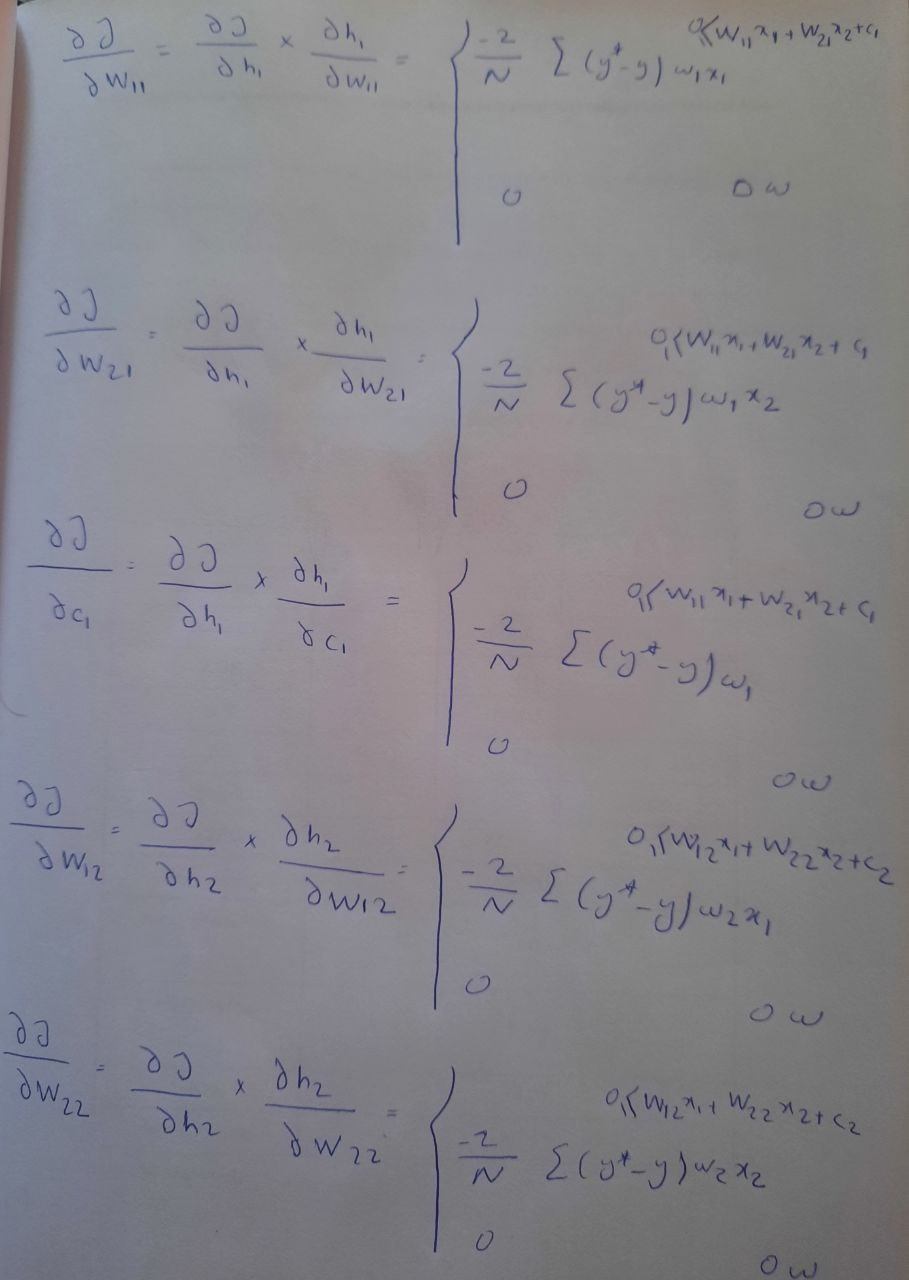 ∂J/∂W₁₁ = ∂J/∂h₁ × ∂h₁/∂W₁₁ = { -2/N Σ(y*-y)w₁x₁ 0⩽W₁₁x₁+W₂₁x₂+c₁
0 ow
∂J/∂W₂₁ = ∂J/∂h₁ × ∂h₁/∂W₂₁ = { -2/N Σ(y*-y)w₁x₂ 0⩽W₁₁x₁+W₂₁x₂+c₁
0 ow
∂J/∂c₁ = ∂J/∂h₁ × ∂h₁/∂c₁ = { -2/N Σ(y*-y)w₁ 0⩽W₁₁x₁+W₂₁x₂+c₁
0 ow
∂J/∂W₁₂ = ∂J/∂h₂ × ∂h₂/∂W₁₂ = { -2/N Σ(y*-y)w₂x₁ 0⩽W₁₂x₁+W₂₂x₂+c₂
0 ow
∂J/∂W₂₂ = ∂J/∂h₂ × ∂h₂/∂W₂₂ = { -2/N Σ(y*-y)w₂x₂ 0⩽W₁₂x₁+W₂₂x₂+c₂
0 ow